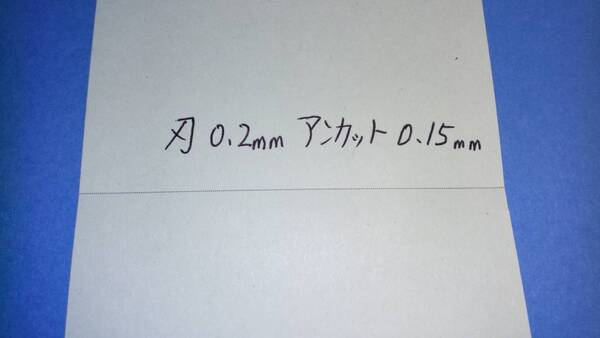 刃 0.2mm アンカット 0.15mm